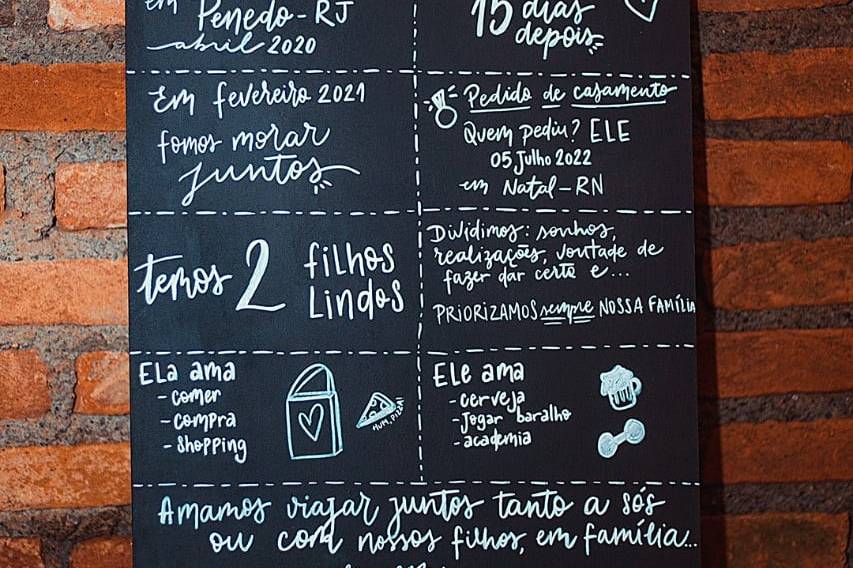 em
Penedo - RJ
abril 2020
15 dias
depois
Em fevereiro 2021
fomos morar
juntos
Pedido de casamento
Quem pediu? ELE
05 Julho 2022
em Natal - RN
temos 2 filhos
Lindos
Dividimos: sonhos,
realizações, vontade de
fazer dar certo e...
PRIORIZAMOS sempre NOSSA FAMÍLIA
Ela ama
- comer
- compra
- shopping
HUM, PIZZA!
Ele ama
- cerveja
- Jogar baralho
- academia
Amamos viajar juntos tanto a sós
ou com nossos filhos, em família...